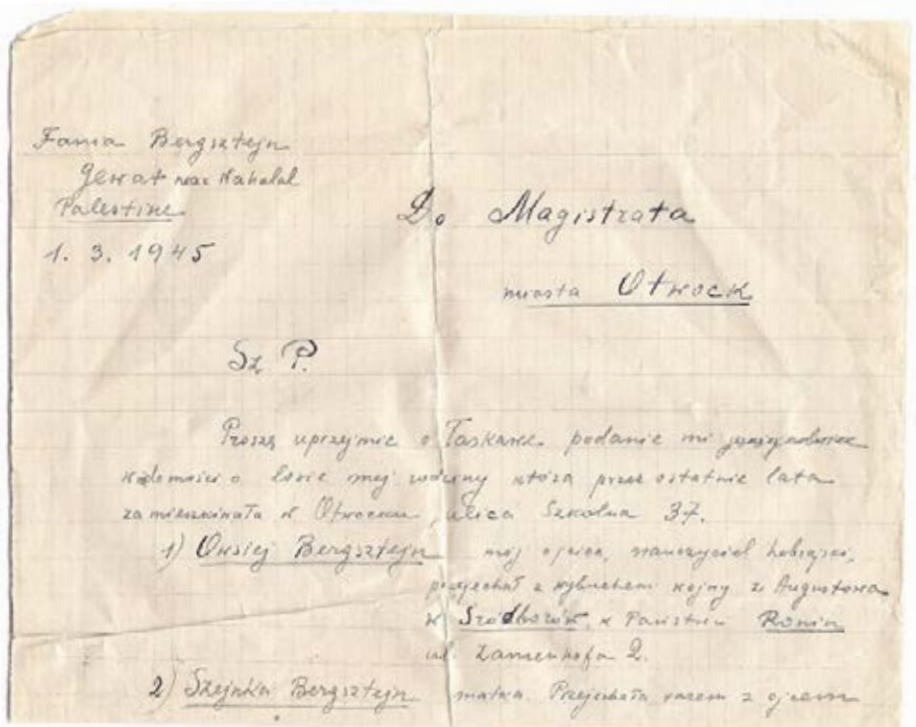 Fania Bergsztejn
Gewat near Nahalal
Palestine
1. 3. 1945
Do Magistrata
miasta Otwock
Sz P.
Proszę uprzejmie o łaskawe podanie mi
wiadomości o losie mej rodziny która przez ostatnie lata
zamieszkiwała w Otwocku ulica Szkolna 37.
1) Owsiej Bergsztejn mój ojciec, nauczyciel hebrajski,
przyjechał z wybuchem wojny z Augustowa
w Śródborów, u Państwa Ronin
ul. Zamenhofa 2.
2) Szejnka Bergsztejn matka. Przyjechała razem z ojcem